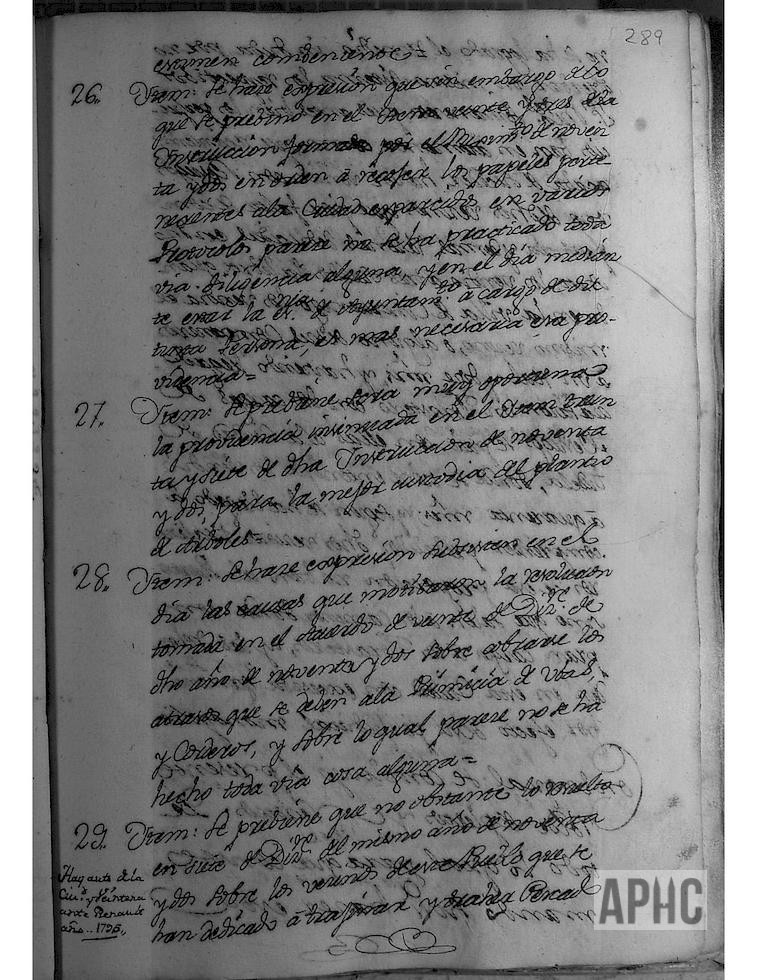 289
examen
26,, Item: Se hace expresion que sin embargo de lo
que se previno en el Item veinte y tres de la
Instruccion formada por el Ayuntam.to de noven
ta y dos en orden à recojer los papeles perte
necientes ala Ciudad esparcidos en varios
Protocolos parece no se ha practicado toda
via diligencia alguna, y en el dia
te estar la es.na de Ayuntam.to à cargo de dis
tinta Persona, es mas necesaria esta pro-
videncia=
27,, Item: Se previene sera muy oportuna
la providencia insinuada en el Item trein
ta y siete de dha Instruccion de noventa
y dos para la mejor custodia del plantio
de Arboles=
28,, Item: Se hace expresion subsisten en el
dia las causas que motivaron la resolucion
tomada en el Acuerdo de veinte de Diz.re de
dho año de noventa y dos sobre cobrarse los
atrasos que se deben ala Primicia de
y Corderos, y sobre lo qual parece no se ha
hecho toda via cosa alguna=
29,, Item: Se previene que no obstante lo resuelto
en siete de Diz.re del mismo año de noventa
y dos sobre los vecinos de este Pueblo que se
han dedicado à trasijinar y traher Pescado
Hay auto de la
Ciu.d y
ante
año.. 1795,,
APHC